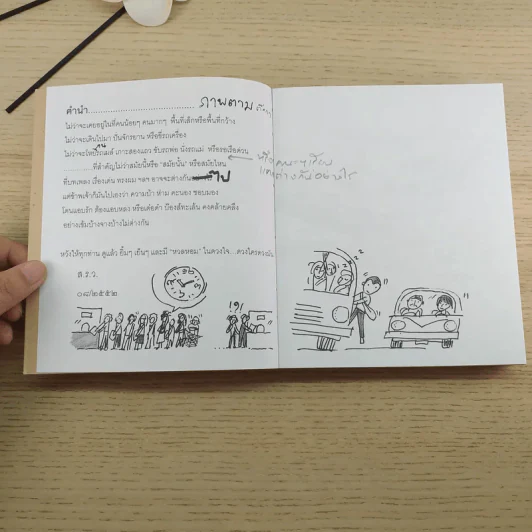 คำนำ........................................ ภาพตาม
ไม่ว่าจะเคยอยู่ในที่คนน้อยๆ คนมากๆ พื้นที่เล็กหรือพื้นที่กว้าง
ไม่ว่าจะเดินไปมา ปั่นจักรยาน หรือขี่รถเครื่อง
ไม่ว่าจะโหนรถเมล์ เกาะสองแถว ขับรถพ่อ นั่งรถแม่ หรือรอเรือด่วน
............ที่สำคัญไม่ว่าสมัยนี้หรือ "สมัยนั้น" หรือสมัยไหน
ที่บทเพลง เรื่องเด่น ทรงผม ฯลฯ อาจจะต่างกันไป
แต่ข้าพเจ้าก็มั่นไปเองว่า ความบ้า ห่าม คะนอง ชอบมอง
โดนแอบรัก ต้องแอบหลง หรือเต๋อดำ ป๋องส์ทะเล้น คงคล้ายคลึง
อย่างเข้มบ้างจางบ้างไม่ต่างกัน
หวังให้ทุกท่าน ดูแล้ว ยิ้มๆ เย็นๆ และมี "หวลหอม" ในดวงใจ...ดวงใครดวงมัน
ส.ร.ว.
๐๘/๒๕๕๒